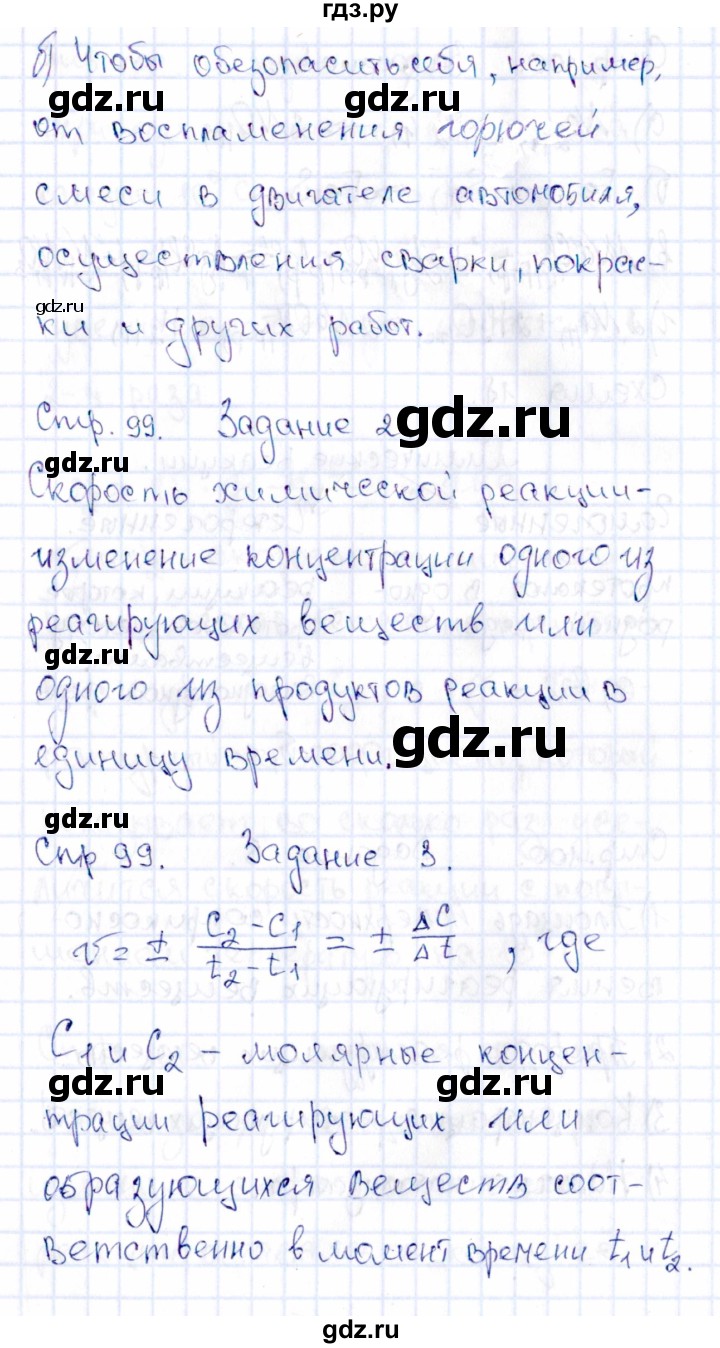 гдз.ру
б) Чтобы обезопасить себя, например,
gdz.ru
gdz.ru
от воспламенения горючей
смеси в двигателе автомобиля,
осуществления сварки, покрас-
gdz.ru
ки и других работ.
Стр. 99. Задание 2
gdz.ru
gdz.ru
Скорость химической реакции-
изменение концентрации одного из
реагирующих веществ или
gdz.ru
одного из продуктов реакции в
единицу времени.
gdz.ru
gdz.ru
Стр 99. Задание 3.
v = ± (C2 - C1)/(t2 - t1) = ± ΔC/Δt , где
C1 и C2 - молярные концен-
gdz.ru
gdz.ru
трации реагирующих или
образующихся веществ соот-
ветственно в момент времени t1 и t2.
gdz.ru